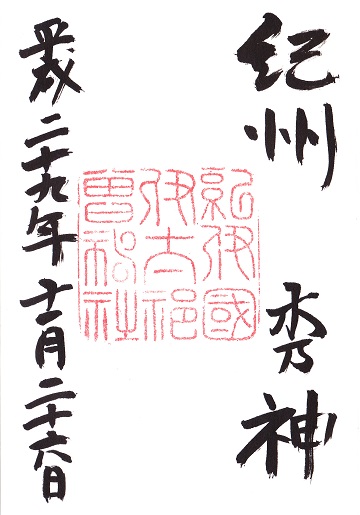 紀州 木乃神
紀伊國
伊太祁
曽神社
平成二十九年十一月二十六日